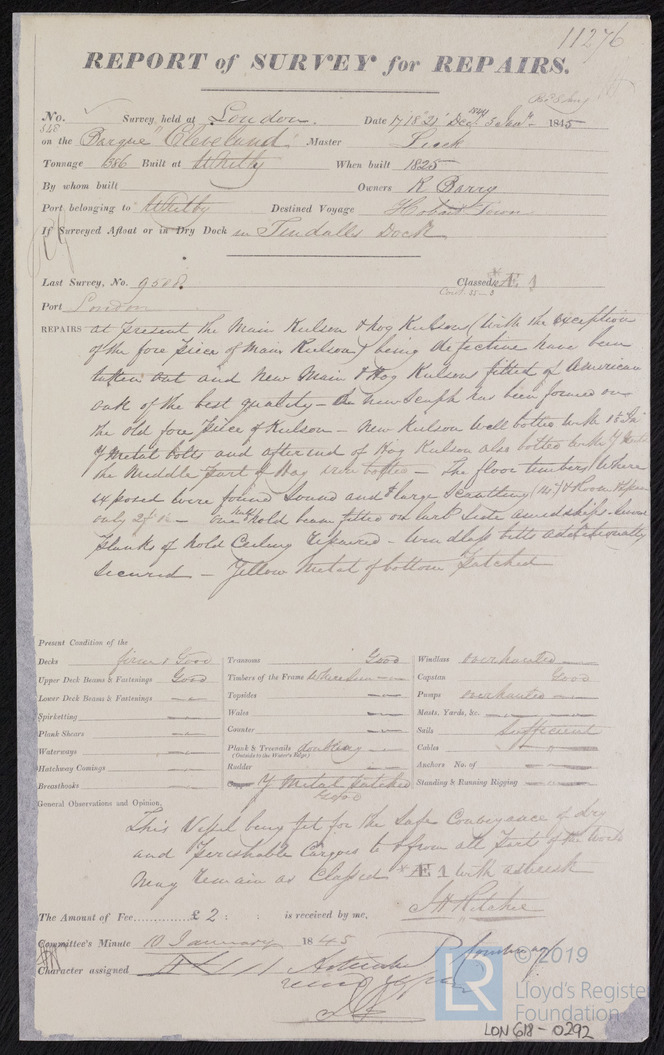 11276
REPORT of SURVEY for REPAIRS.
No. Survey held at London. Date 17 18 21 Dec 1845
on the Barque "Cleveland" Master
Tonnage 386 Built at Whitby When built 1825
By whom built Owners R Barry
Port belonging to Whitby Destined Voyage Hobart Town
If Surveyed Afloat or in Dry Dock in Tindalls Dock
Last Survey, No. 9508. Classed Æ 1
Port London
REPAIRS at present the Main Kulson & hog Kulson (with the exception
of the fore piece of Main Kulson) being defective have been
taken out and New Main & Hog Kulsons fitted of American
oak of the best quality – New Scarph has been formed on
the old fore piece of Kulson – New Kulson well bolted with
Y Metal bolts and after end of Hog Kulson also bolted with Y Metal
the Middle part of Hog iron bolted – The floor timbers (Where
exposed were found Sound and large Scantling & Room &
only – one hold beam fitted on larb. Side amidships. Some
planks of hold Ceiling repaired – Windlass bitts additionally
Secured – Yellow Metal of bottom patched
Present Condition of the
Decks Good
Upper Deck Beams & Fastenings Good
Lower Deck Beams & Fastenings
Spirketting
Plank Shears
Waterways
Hatchway Comings
Breasthooks
Transoms Good
Timbers of the Frame where seen
Topsides
Wales
Counter
Plank & Treenails doubling
(Outside to the Water's Edge)
Rudder
Y Metal patched
Good
Windlass overhauled
Capstan Good
Pumps overhauled
Masts, Yards, &c.
Sails Sufficient
Cables
Anchors No. of
Standing & Running Rigging
General Observations and Opinion,
This Vessel being fit for the Safe Conveyance of dry
and perishable Cargoes to & from all parts of the World
May remain as Classed * Æ 1 with asterisk
J H Ritchie
The Amount of Fee............ £ 2 : : is received by me,
Committee's Minute 10 January 1845
Character assigned
© 2019
LR
Lloyd's Register
Foundation
LON 618-0292